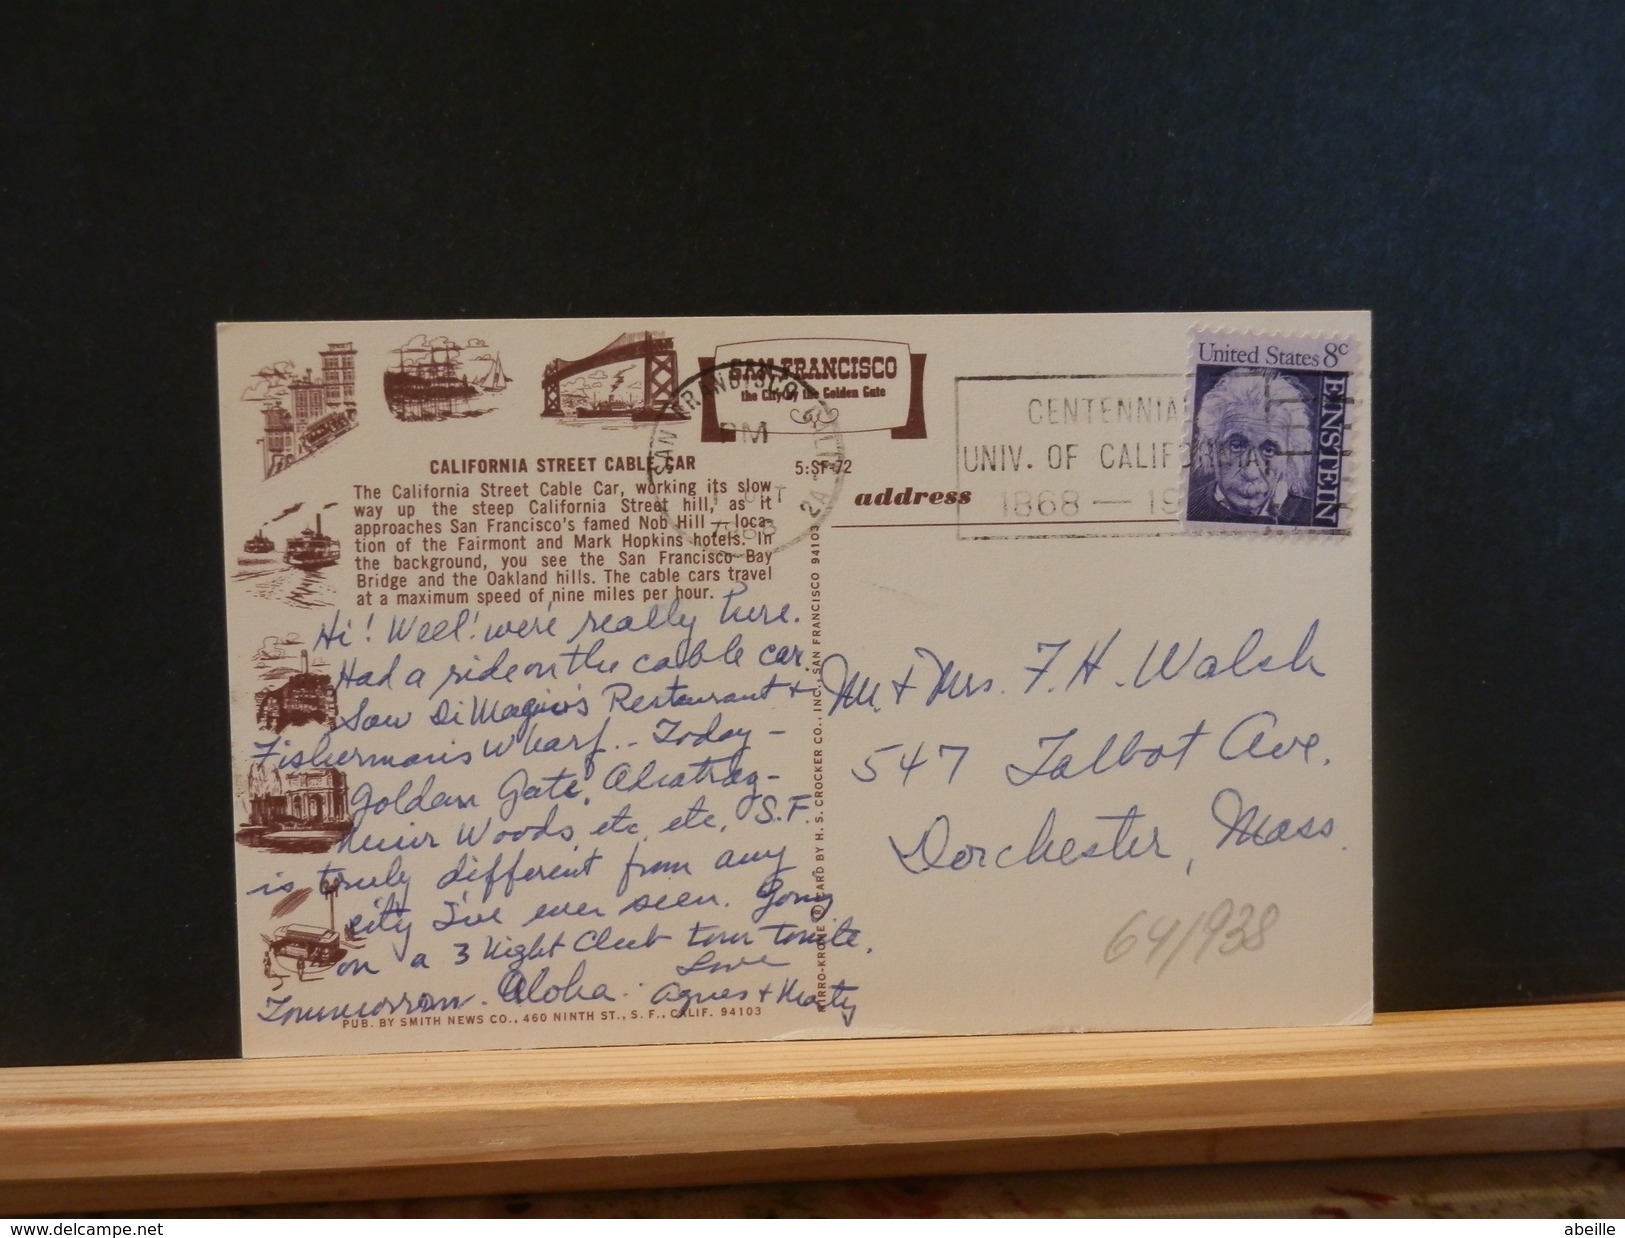 SAN FRANCISCO
the City by the Golden Gate
CALIFORNIA STREET CABLE CAR
5:SF-72
The California Street Cable Car, working its slow
way up the steep California Street hill, as it
approaches San Francisco's famed Nob Hill — loca-
tion of the Fairmont and Mark Hopkins hotels. In
the background, you see the San Francisco Bay
Bridge and the Oakland hills. The cable cars travel
at a maximum speed of nine miles per hour.
Hi! Well! we're really here.
Had a ride on the cable car.
Saw Di Magio's Restaurant +
Fisherman's Wharf. - Today -
Golden Gate, Alcatraz -
Muir Woods, etc, etc, S.F.
is truly different from any
city I've ever seen. Going
on a 3 Night Club tour tonite.
Tommorrow. Aloha. Love
Agnes + Marty
PUB. BY SMITH NEWS CO., 460 NINTH ST., S. F., CALIF. 94103
MIRRO-KROME ® CARD BY H. S. CROCKER CO., INC., SAN FRANCISCO 94103
SAN FRANCISCO, CALIF
PM
OCT
1968
address
CENTENNIA
UNIV. OF CALIFORNIA
1868 — 19
United States 8c
EINSTEIN
Mr. + Mrs. F. H. Walsh
547 Talbot Ave.
Dorchester, Mass.
64/938
www.delcampe.net
abeille